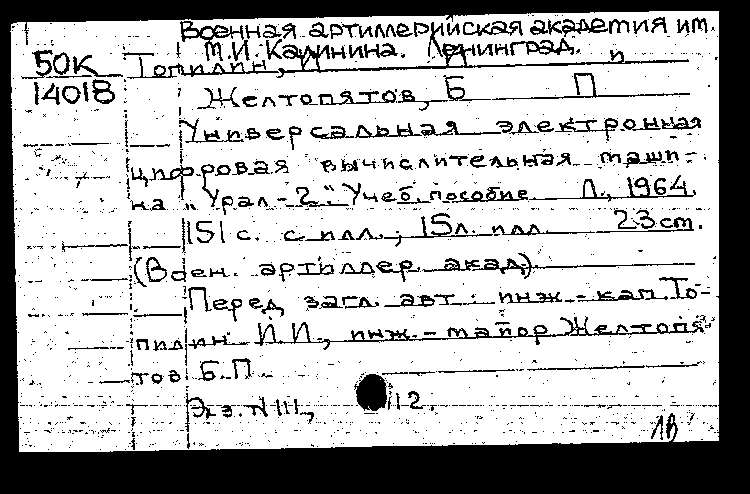 Военная артиллерийская академия им.
М.И. Калинина. Ленинград.
50К
14018
Топилин, И И
Желтопятов, Б П
Универсальная электронная
цифровая вычислительная маши-
на „Урал-2". Учеб. пособие Л., 1964.
151 с. с илл.; 15л. илл. 23см.
(Воен. артиллер. акад)
Перед загл. авт. инж.-кап. То-
пилин И.И., инж.-майор Желтопя-
тов Б.П.
Экз. N 111, 112.